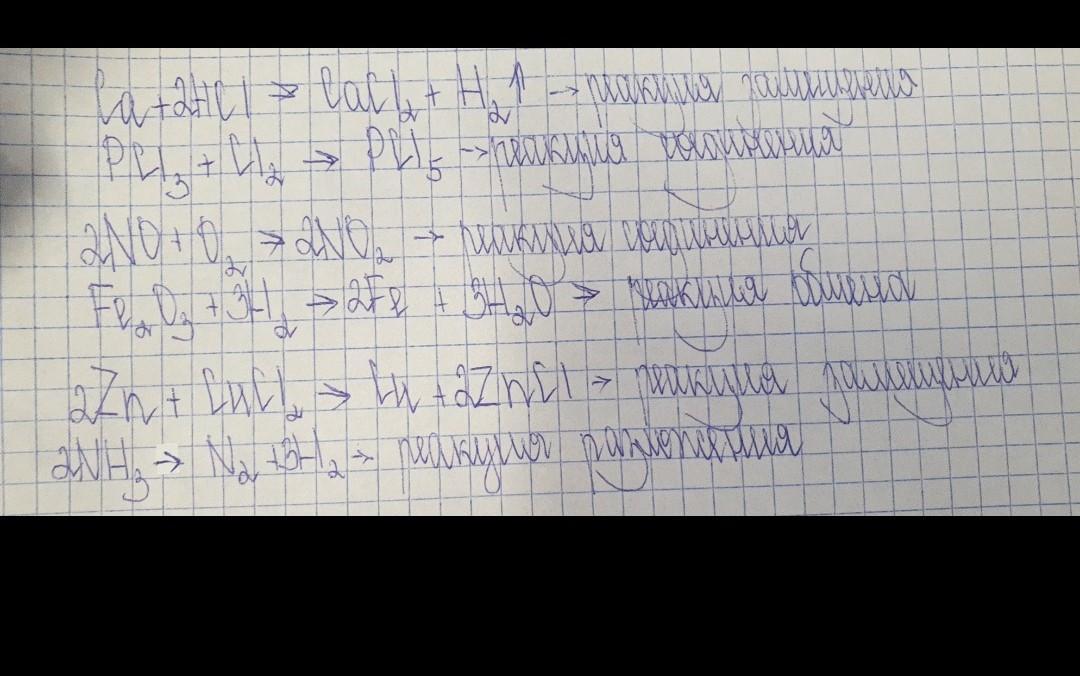 Ca + 2HCl → CaCl₂ + H₂↑ → реакция замещения
PCl₃ + Cl₂ → PCl₅ → реакция соединения
2NO + O₂ → 2NO₂ → реакция соединения
Fe₂O₃ + 3H₂ → 2Fe + 3H₂O → реакция обмена
2Zn + CuCl₂ → Cu + 2ZnCl → реакция замещения
2NH₃ → N₂ + 3H₂ → реакция разложения